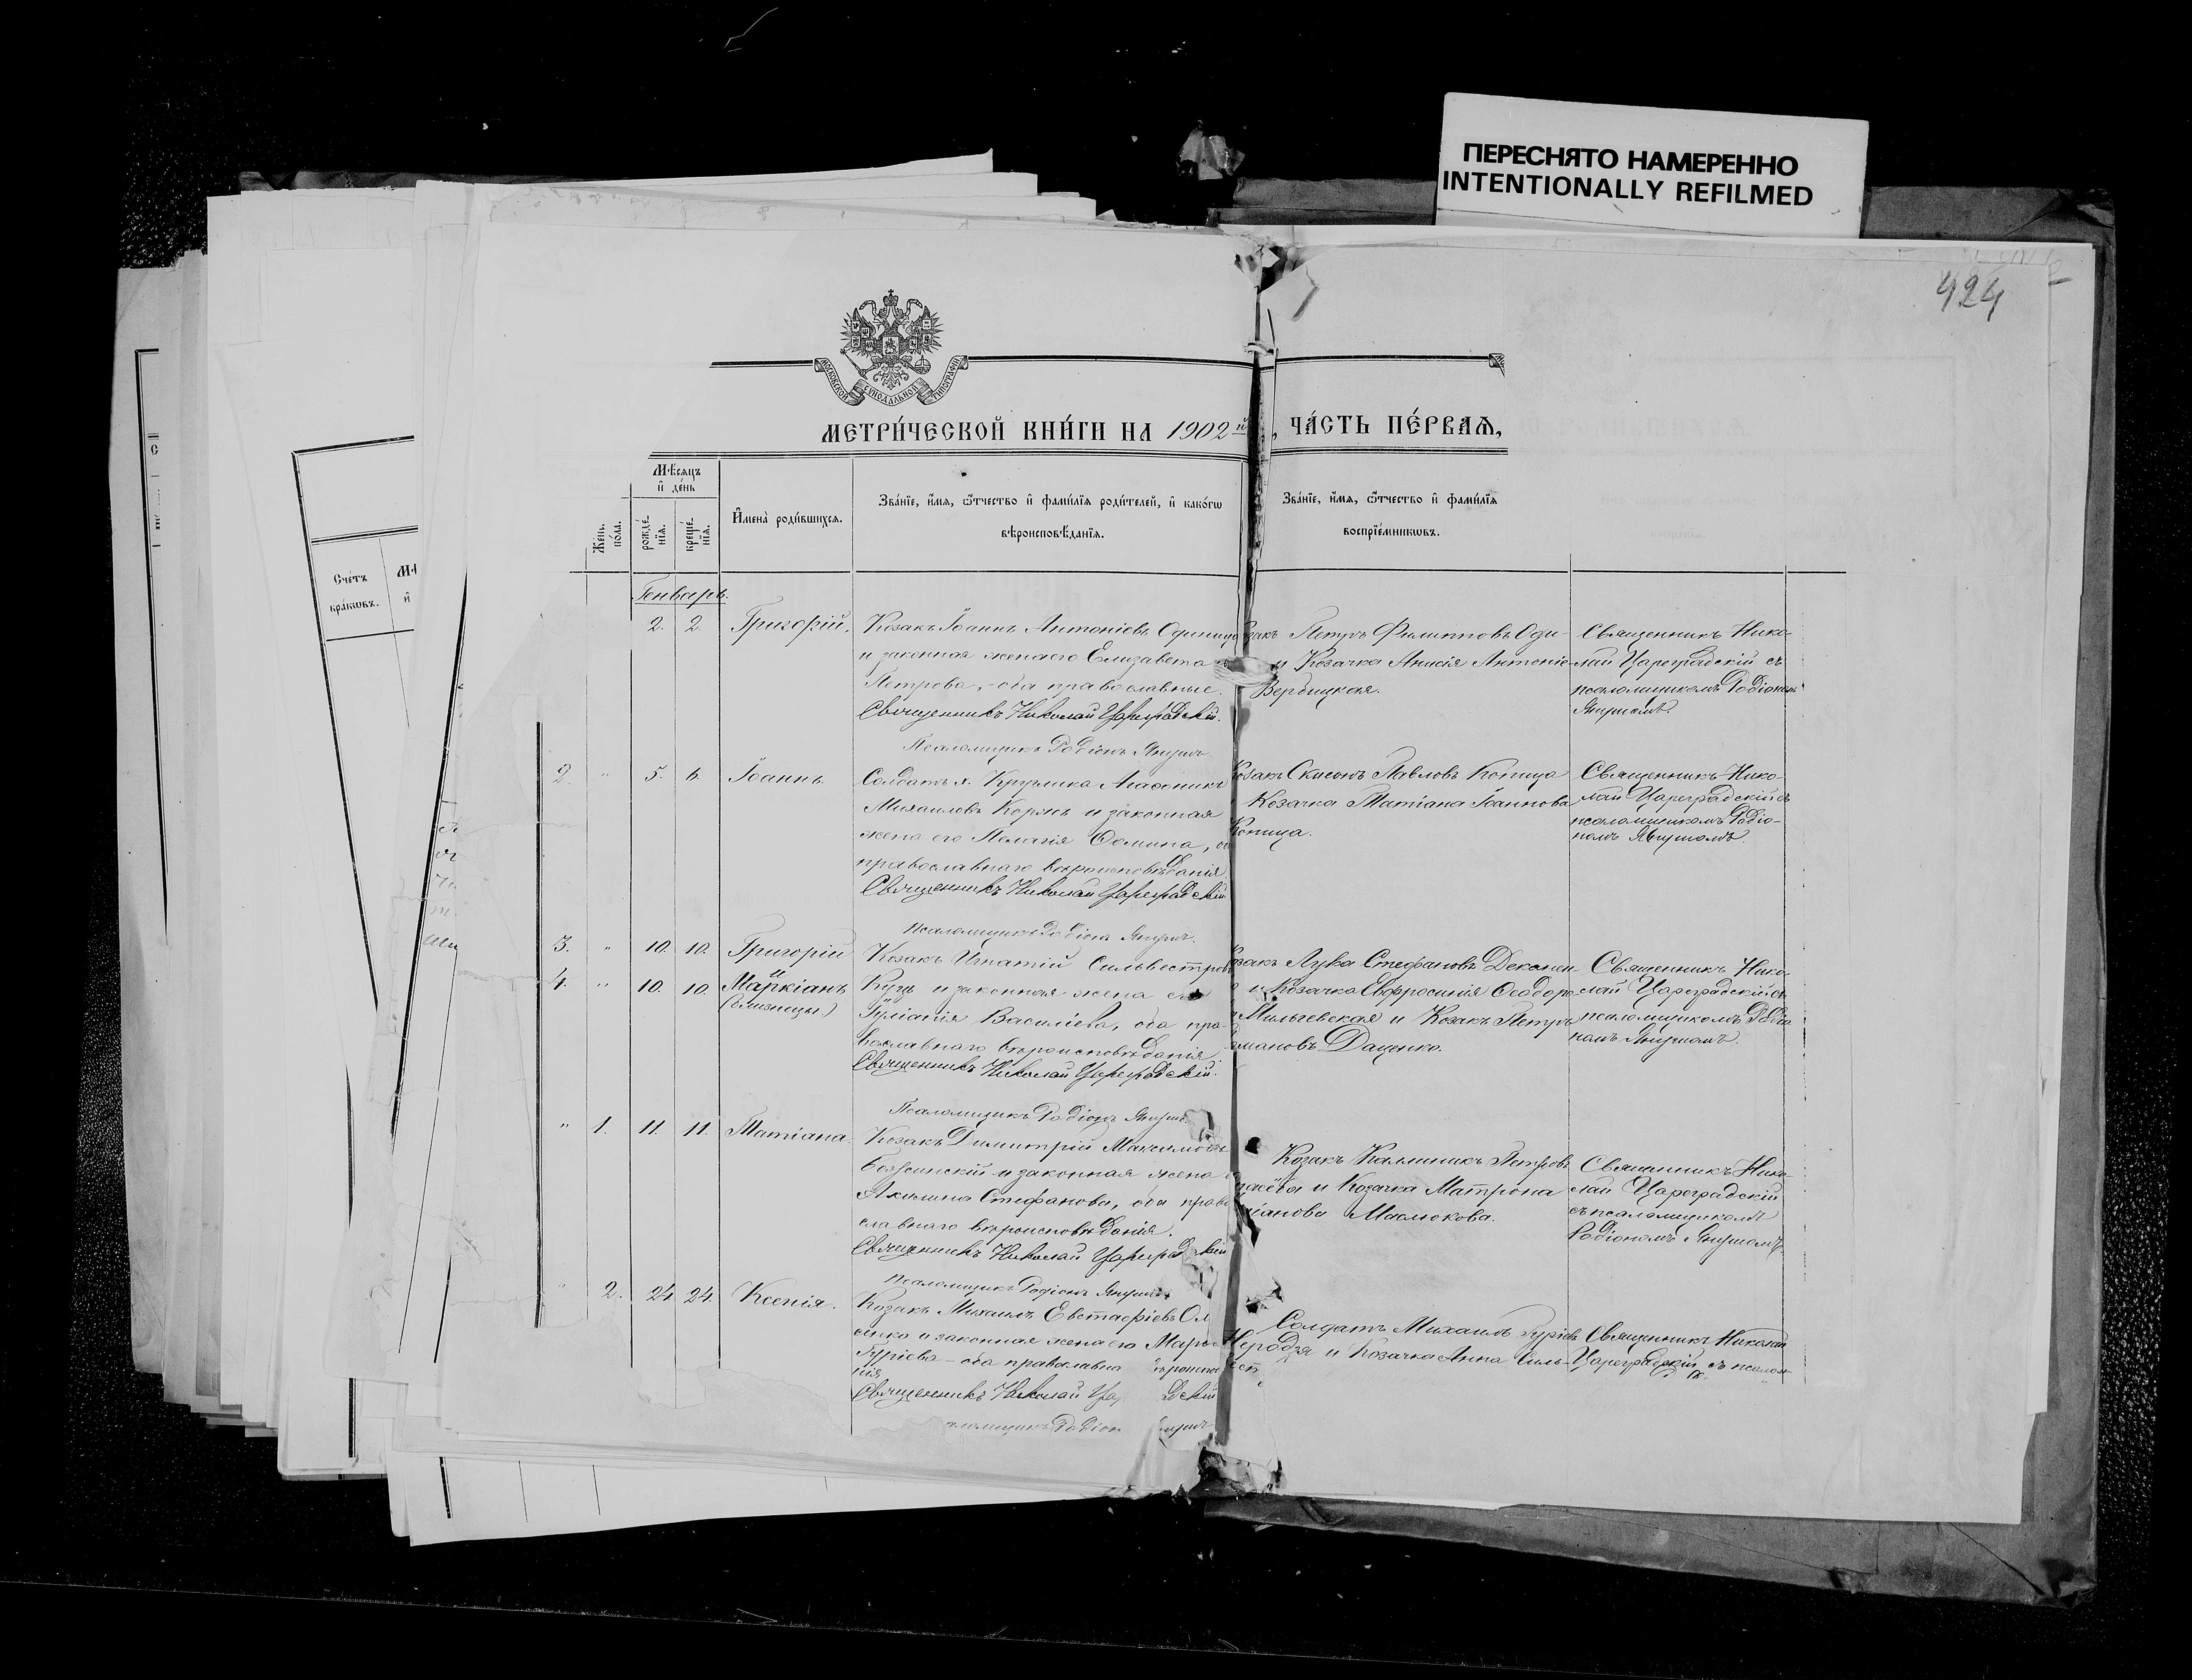 ПЕРЕСНЯТО НАМЕРЕННО
INTENTIONALLY REFILMED
424
МОСКОВСКОЙ СѴНОДАЛЬНОЙ ТИПОГРАФІИ
МЕТРИ́ЧЕСКОЙ КНИ́ГИ НА 1902й, ЧА́СТЬ ПЕ́РВАѦ,
Счетъ
браковъ.
Мѣсяцъ
и день
Жен. пола.
рожде-нія.
креще-нія.
Имена родившихся.
Званіе, имя, ѿчество и фамилія родителей, и какогѡ
вѣроисповѣданія.
Званіе, имя, ѿчество и фамилія
воспріемникѡвъ.
Генварь.
2. 2. Григорій.
Козакъ Іоаннъ Антоніевъ Одинец
и законная жена его Елизавета
Петрова, - оба православные.
Священникъ Николай Цареградскій.
Псаломщикъ Родіонъ Янушъ
Петръ Филипповъ Оди-
и Козачка Анисія Антоніе-
Вербицкая.
Священникъ Нико-
лай Цареградскій съ
псаломщикомъ Родіономъ
Янушомъ.
2. " 5. 6. Іоаннъ.
Солдатъ х.
Михаиловъ Коржъ и законная
жена его Пелагія Ѳомина,
православнаго вѣроисповѣданія.
Священникъ Николай Цареградскій
Псаломщикъ Родіонъ Янушъ.
Козакъ Павловъ Копица
Козачка Татіана Іоаннова
Копица.
Священникъ Нико-
лай Цареградскій съ
псаломщикомъ Родіо-
номъ Янушомъ.
3. " 10. 10. Григорій
и
4. " 10. 10. Маркіанъ
(близнецы)
Козакъ Игнатій Сильвестров
Куцъ и законная жена его
Іуліанія Васильева, оба пра-
вославнаго вѣроисповѣданія.
Священникъ Николай Цареградскій.
Псаломщикъ Родіонъ Янушъ
Лука Стефановъ
и Козачка Евфросинія Ѳеодоро-
Мильчевская и Козакъ Петръ
мановъ Даценко.
Священникъ Нико-
лай Цареградскій съ
псаломщикомъ Родіо-
номъ Янушомъ.
" 1. 11. 11. Татіана.
Козакъ Димитрій Максимовъ
и законная жена
Акилина Стефанова, оба право
славнаго вѣроисповѣданія.
Священникъ Николай Цареградскій
Псаломщикъ Родіонъ Янушъ
Козакъ Калиникъ Петровъ
и Козачка Матрона
Маслюкова.
Священникъ Нико-
лай Цареградскій
съ псаломщикомъ
Родіономъ Янушомъ.
" 2. 24. 24. Ксенія.
Козакъ Михаилъ Евстафіевъ Ол
енко и законная жена его Марѳ
Гуріева - оба православна вѣроиспов
нія
Священникъ Николай Цар дскій
аломщикъ Родіон нушъ
Солдатъ Михаилъ Гуріевъ
и Козачка Анна Силь-
вест
Священникъ Николай
Цареградскій съ псалом-